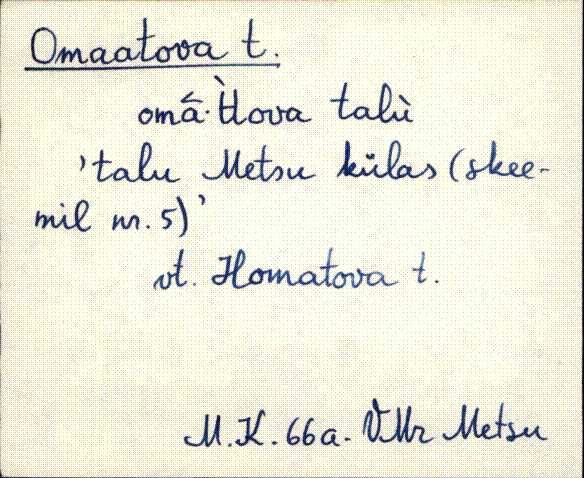 Omaatova t.
omâ·t̀tova talù
'talu Metsu külas (skee-
mil nr. 5)'
vt. Homatova t.
M.K. 66a. VMr Metsu